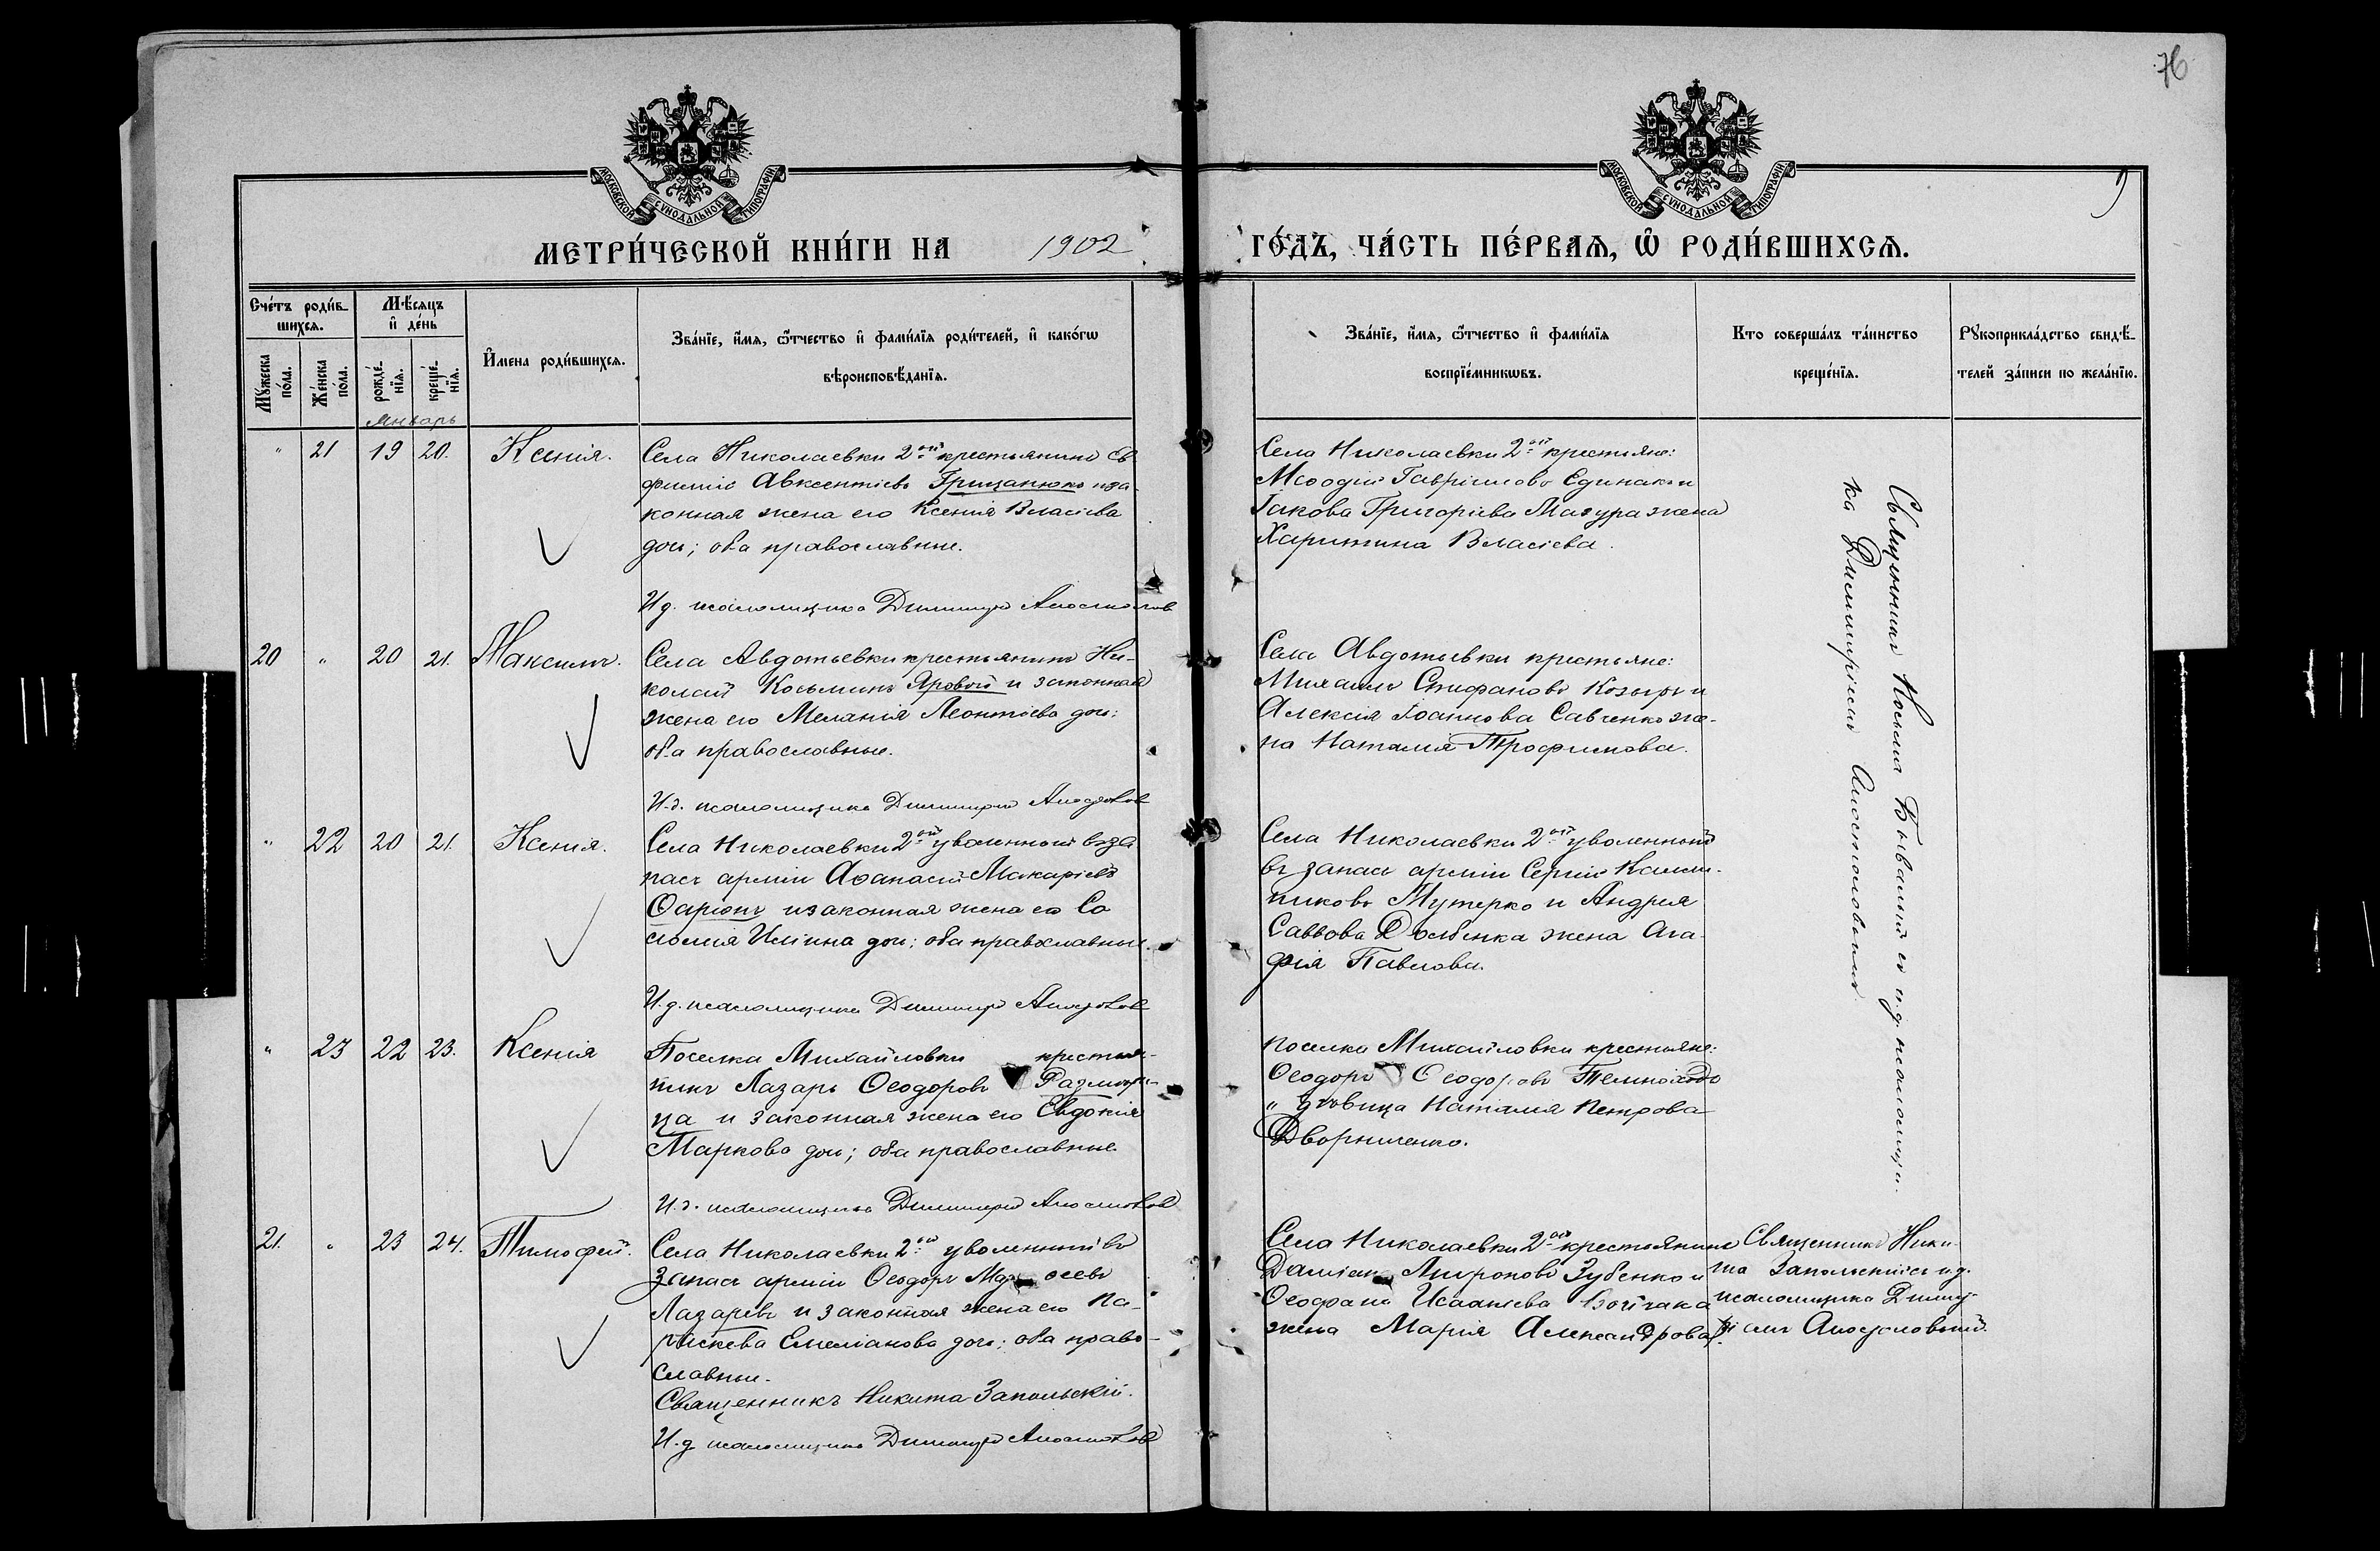 76
9
МОСКОВСКОЙ СѴНОДАЛЬНОЙ ТИПОГРАФІИ
МОСКОВСКОЙ СѴНОДАЛЬНОЙ ТИПОГРАФІИ
МЕТРИ́ЧЕСКОЙ КНИ́ГИ НА 1902 ГО́ДЪ, ЧА́СТЬ ПЕ́РВАѦ, Ѿ РОДИ́ВШИХСѦ.
Сче́тъ роди́в-
шихсѧ.
Мꙋ́жеска
по́ла.
Же́нска
по́ла.
Мѣ́сѧцъ
и҆ де́нь
рожде́-
нїѧ.
креще́-
нїѧ.
Январь
И҆мена роди́вшихсѧ.
Зва́нїе, и҆́мѧ, ѻ҆́тчество и҆ фами́лїѧ роди́телей, и҆ како́гѡ
вѣроисповѣ́данїѧ.
Зва́нїе, и҆́мѧ, ѻ҆́тчество и҆ фами́лїѧ
воспрїе́мникѡвъ.
Кто соверша́лъ та́инство
креще́нїѧ.
Рꙋкоприкла́дство свидѣ́-
телей за́писи по жела́нїю.
" 21 19 20. Ксенія.
Села Николаевки 2ой крестьянинъ Ев
фимій Авксентіевъ Грицанюкъ и за-
конная жена его Ксенія Власіева
дочь; оба православные.
И д. псаломщика Димитрій Апостолов
Села Николаевки 2ой крестьяне:
Меѳодій Гавріиловъ Единакъ и
Іакова Григоріева Мазура жена
Харитина Власіева.
20 " 20 21. Максимъ.
Села Авдотьевки крестьянинъ Ни-
колай Косьминъ Яровой и законная
жена его Меланія Леонтіева дочь:
оба православные.
И.д. псаломщика Димитрій Апостолов
Села Авдотьевки крестьяне:
Михаилъ Стефановъ Козырь и
Алексія Іоаннова Савченко же-
на Наталія Трофимова.
" 22 20 21. Ксенія.
Села Николаевки 2ой уволенный въ за
пасъ арміи Аѳанасій Макаріевъ
Ѳаріонъ и законная жена его Со
ломія Иліина дочь: оба православные.
И.д. псаломщика Димитрій Апостолов
Села Николаевки 2ой уволенный
въ запасъ арміи Сергій Калин-
никовъ Мутерко и Андрея
Саввова Долбенка жена Ага
фія Павлова.
" 23 22 23. Ксенія
Поселка Михайловки крестья-
нинъ Лазарь Ѳеодоровъ Размари-
ца и законная жена его Евдокія
Маркова дочь; оба православные.
И.д. псаломщика Димитрій Апостолов
поселка Михайловки крестьяне:
Ѳеодоръ Ѳеодоровъ Темноходъ
и дѣвица Наталія Петрова
Дворниченко.
Священникъ Косьма Бывалый съ и.д. псаломщи-
ка Димитріемъ Апостоловымъ.
21. " 23 24. Тимофей.
Села Николаевки 2ой уволенный въ
запасъ арміи Ѳеодоръ
Лазаревъ и законная жена его Па-
раскева Емеліанова дочь; оба право-
славные.
Священникъ Никита Запольскій.
И.д псаломщика Димитрій Апостолов
Села Николаевки 2ой крестьянинъ
Даміанъ Мироновъ Зубенко и
Ѳеофана Исаакіева
жена Марія Александрова.
Священникъ Ники-
та Запольскій съ и.д.
псаломщика Димит-
ріемъ Апостоловымъ.